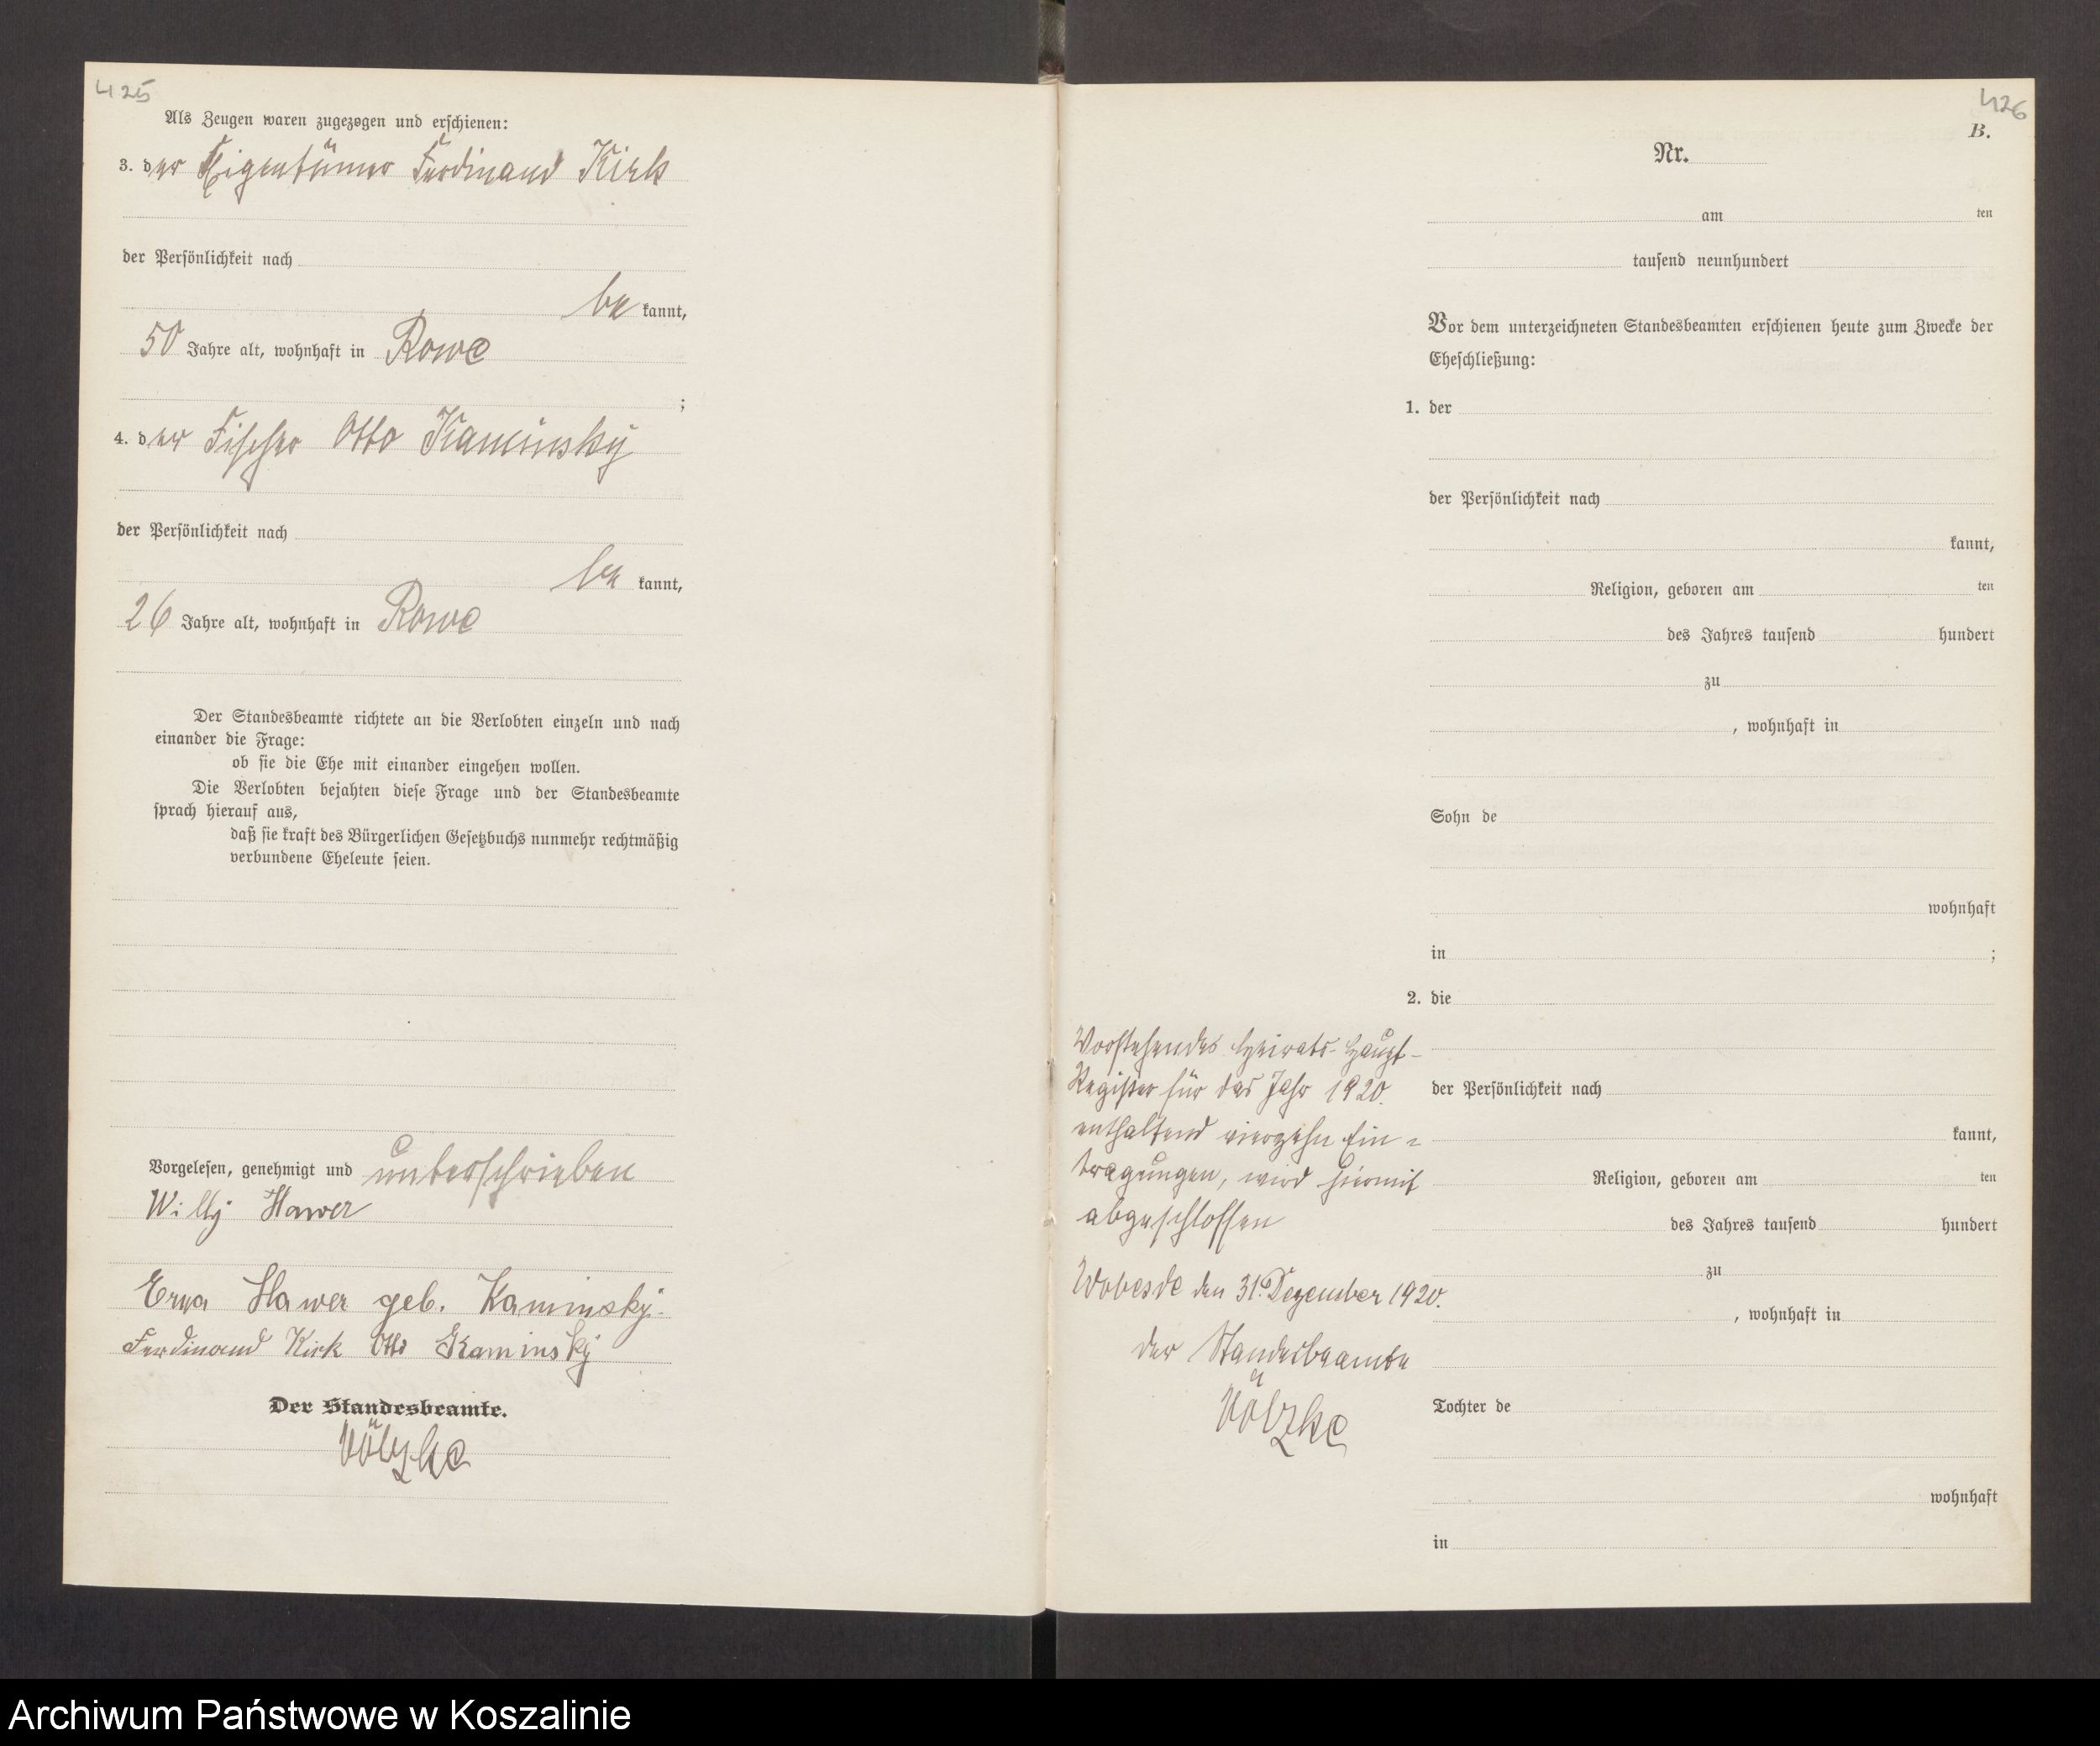 425
Als Zeugen waren zugezogen und erschienen:
3. der Eigentümer Ferdinand Kirk
der Persönlichkeit nach
be kannt,
50 Jahre alt, wohnhaft in Rowe
;
4. der Fischer Otto Kaminsky
der Persönlichkeit nach
be kannt,
26 Jahre alt, wohnhaft in Rowe
Der Standesbeamte richtete an die Verlobten einzeln und nach
einander die Frage:
ob sie die Ehe mit einander eingehen wollen.
Die Verlobten bejahten diese Frage und der Standesbeamte
sprach hierauf aus,
daß sie kraft des Bürgerlichen Gesetzbuchs nunmehr rechtmäßig
verbundene Eheleute seien.
Vorgelesen, genehmigt und unterschrieben
Willy Hawer
Erna Hawer geb. Kaminsky.
Ferdinand Kirk Otto Kaminsky
Der Standesbeamte.
Völzke
426
B.
Nr.
am ten
tausend neunhundert
Vor dem unterzeichneten Standesbeamten erschienen heute zum Zwecke der
Eheschließung:
1. der
der Persönlichkeit nach
kannt,
Religion, geboren am ten
des Jahres tausend hundert
zu
, wohnhaft in
Sohn de
wohnhaft
in ;
2. die
der Persönlichkeit nach
kannt,
Religion, geboren am ten
des Jahres tausend hundert
zu
, wohnhaft in
Tochter de
wohnhaft
in
Vorstehendes Heirats-Haupt-
Register für das Jahr 1920.
enthaltend vierzehn Ein-
tragungen, wird hiermit
abgeschlossen
Wobesde den 31. Dezember 1920.
der Standesbeamte
Völzke
Archiwum Państwowe w Koszalinie